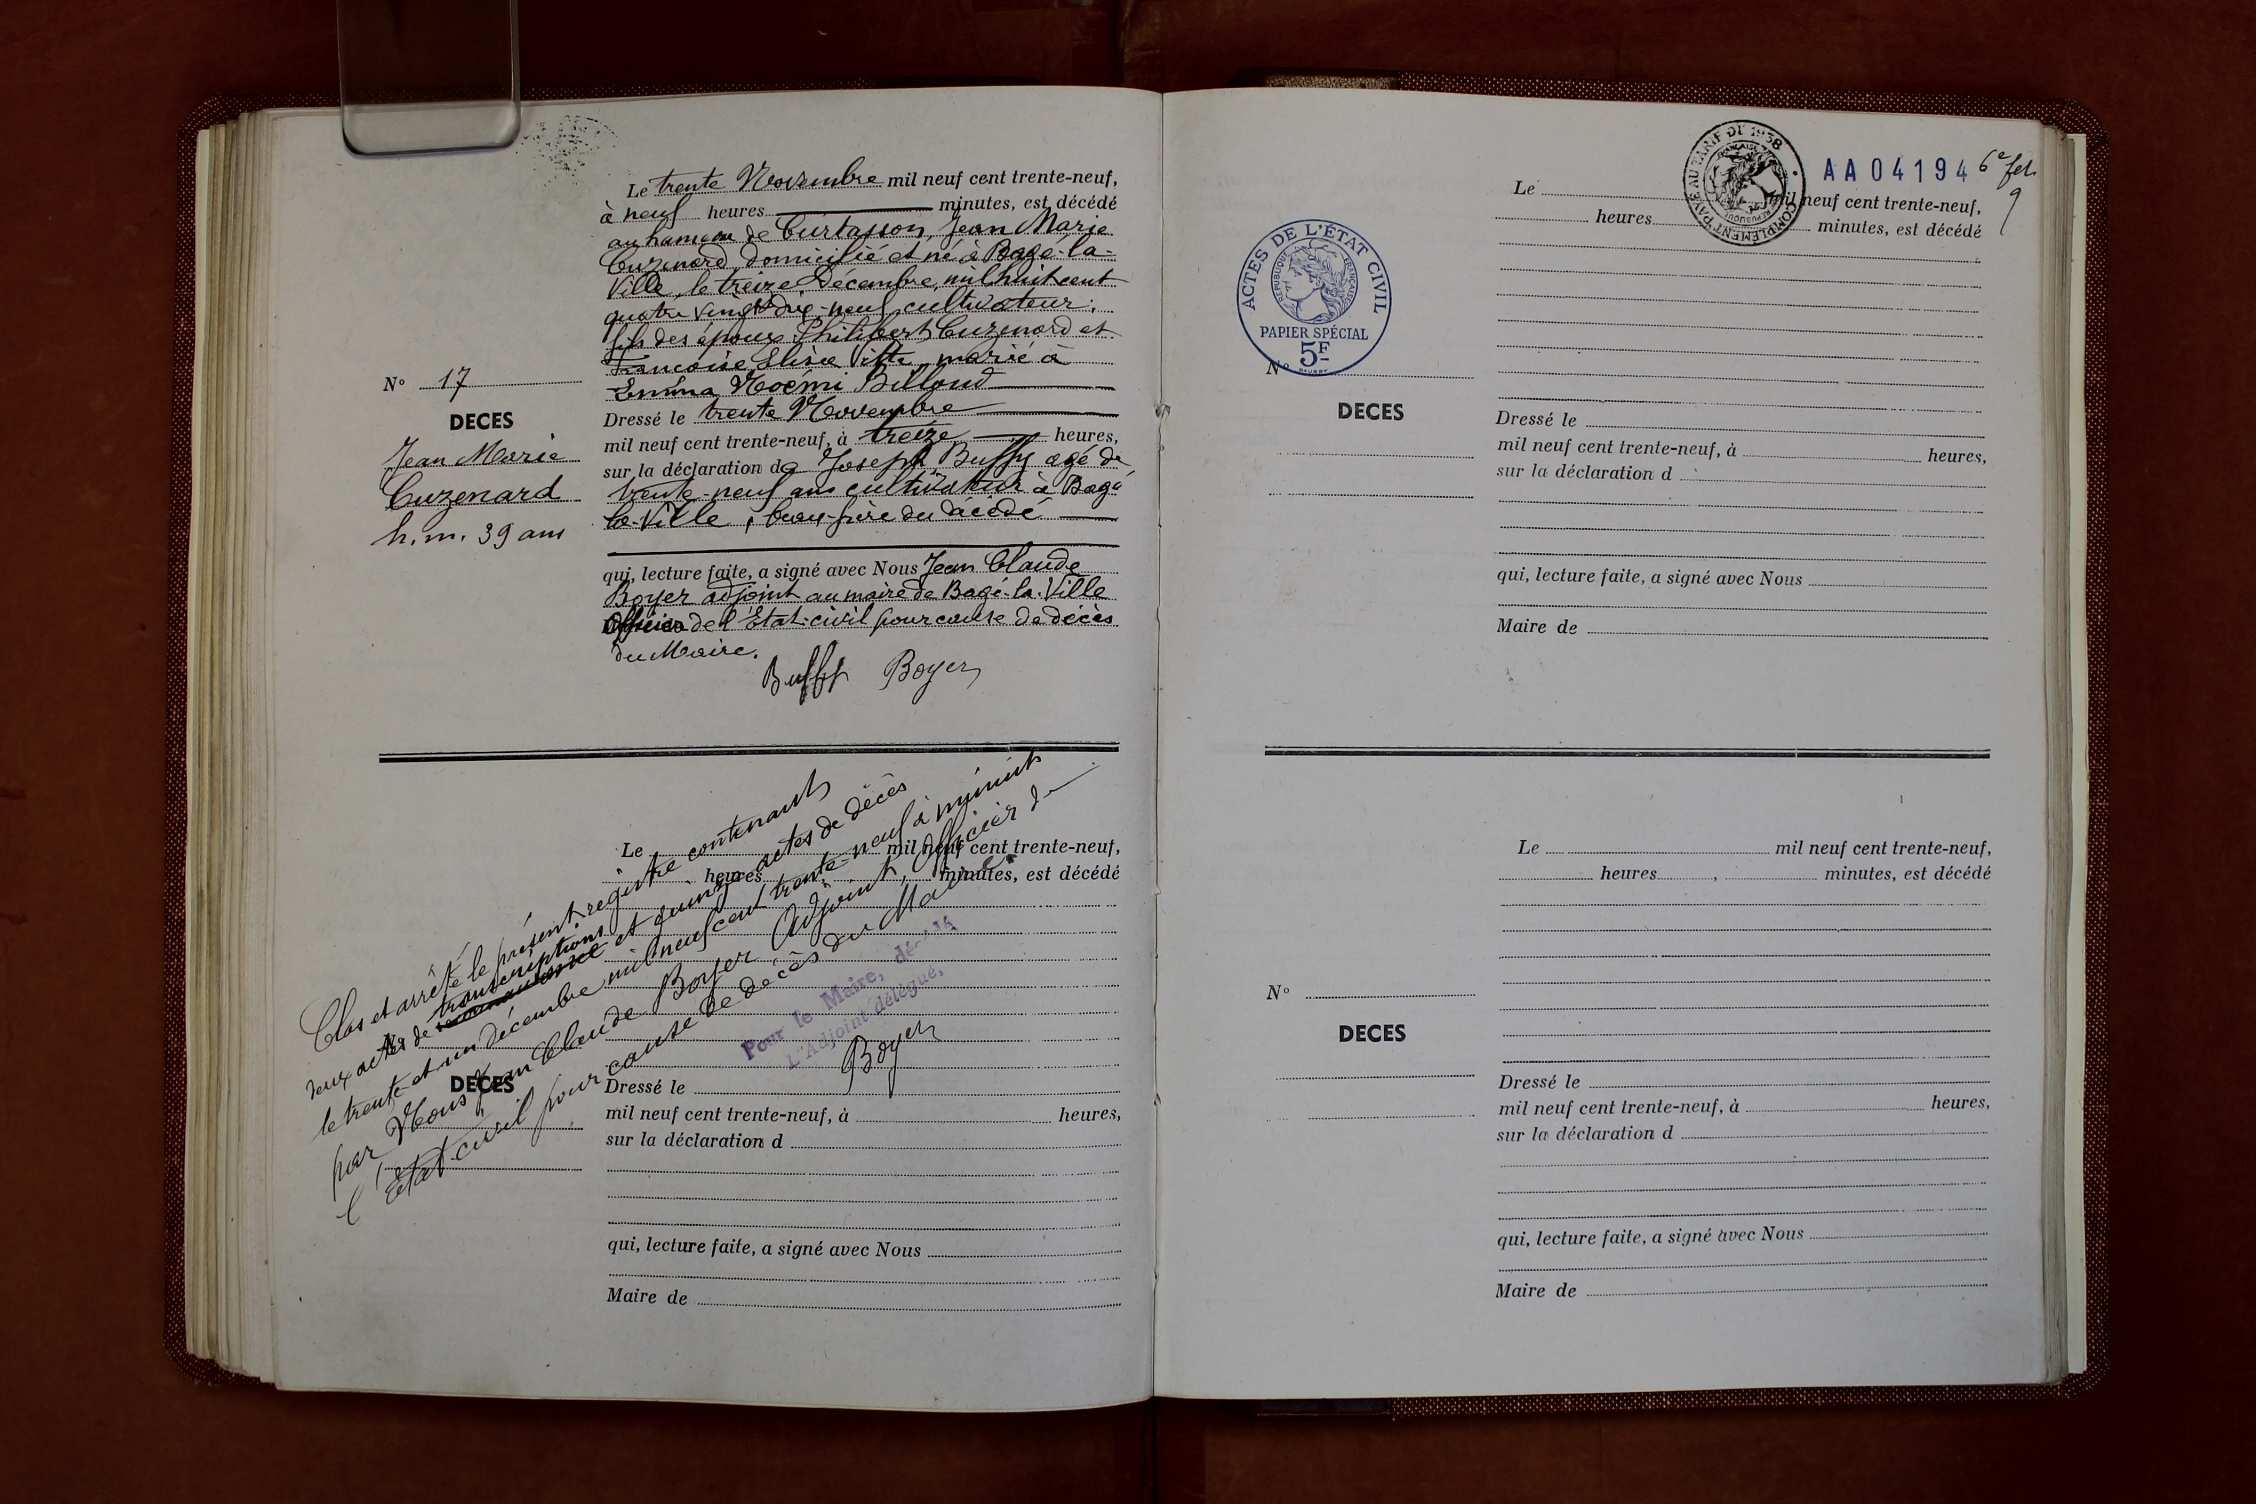 Le trente Novembre mil neuf cent trente-neuf,
à neuf heures minutes, est décédé
au hameau de Curtasson, Jean Marie
Cuzenard domicilié et né à Bagé-la-
Ville, le treize Décembre, mil huit cent
quatre vingt dix-neuf cultivateur,
fils des époux Philibert Cuzenard et
Françoise Elisa Vitte, marié à
Emma Noémi Billoud
Dressé le trente Novembre
mil neuf cent trente-neuf, à treize heures,
sur la déclaration de Joseph Buffy agé de
trente-neuf ans cultivateur à Bagé
la-Ville, beau-frère du décédé
qui, lecture faite, a signé avec Nous Jean Claude
Boyer adjoint au maire de Bagé-la-Ville
Officier de l'Etat-civil pour cause de décès
du Maire.
Buffy Boyer
N° 17
DECES
Jean Marie
Cuzenard
h.m. 39 ans
Clos et arrêté le présent registre contenant
deux actes de transcriptions et quinze actes de décès
le trente et un décembre mil neuf cent trente-neuf à minuit
par Nous Jean Claude Boyer Adjoint, Officier de
l'Etat-civil pour cause de décès du Maire.
Pour le Maire,
L'Adjoint délégué,
Boyer
Le mil neuf cent trente-neuf,
heures minutes, est décédé
N°
DECES
Dressé le
mil neuf cent trente-neuf, à heures,
sur la déclaration d
qui, lecture faite, a signé avec Nous
Maire de
COMPLEMENT PAYÉ AU TARIF DE 1938
AA04194
6e fet.
9
ACTES DE L'ÉTAT CIVIL
REPUBLIQUE FRANÇAISE
PAPIER SPÉCIAL
5F
Le mil neuf cent trente-neuf,
heures minutes, est décédé
N°
DECES
Dressé le
mil neuf cent trente-neuf, à heures,
sur la déclaration d
qui, lecture faite, a signé avec Nous
Maire de
Le mil neuf cent trente-neuf,
heures minutes, est décédé
N°
DECES
Dressé le
mil neuf cent trente-neuf, à heures,
sur la déclaration d
qui, lecture faite, a signé avec Nous
Maire de